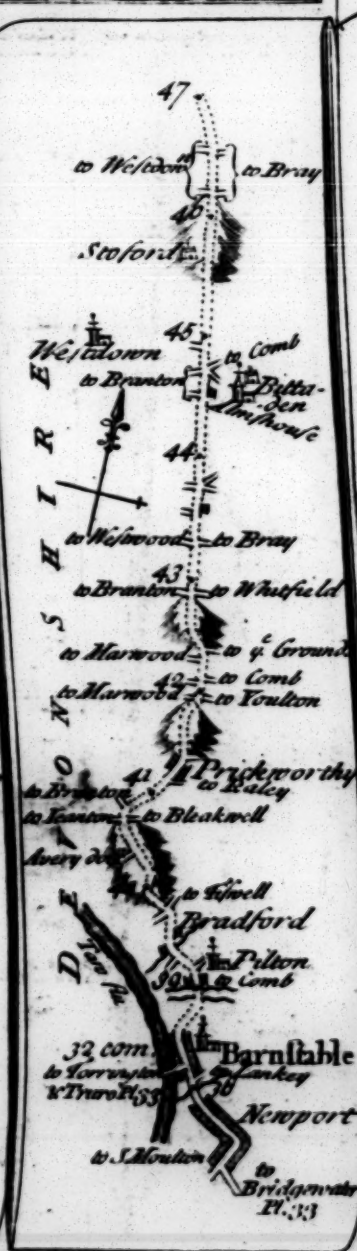 47
to Westdon to Bray
46
Stoford
45
Westdown
to Comb
to Branton
Bitta-
den
Almshouse
44
to Westwood to Bray
43
to Branton to Whitfield
to Marwood to ye Ground
42 to Comb
to Marwood to Youlton
Prickworthy
to Raley
41
to Branton
to Ieanton to Bleakwell
Avery do
40
to Fiswell
Bradford
Pilton
39 to Comb
DEVONSHIRE
Taw flu
32 com.
Barnſtable
to Torrington
& Truro Pl. 33
38
Newport
to S. Moulton
to
Bridgewater
Pl. 33